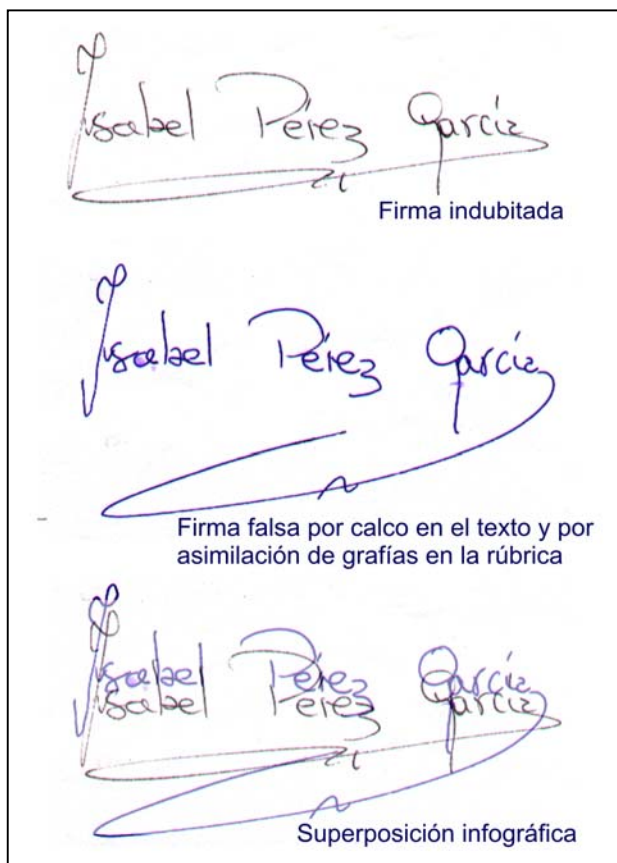 Isabel Pérez García
Firma indubitada
Isabel Pérez García
Firma falsa por calco en el texto y por
asimilación de grafías en la rúbrica
Isabel Pérez García
Isabel Pérez García
Superposición infográfica